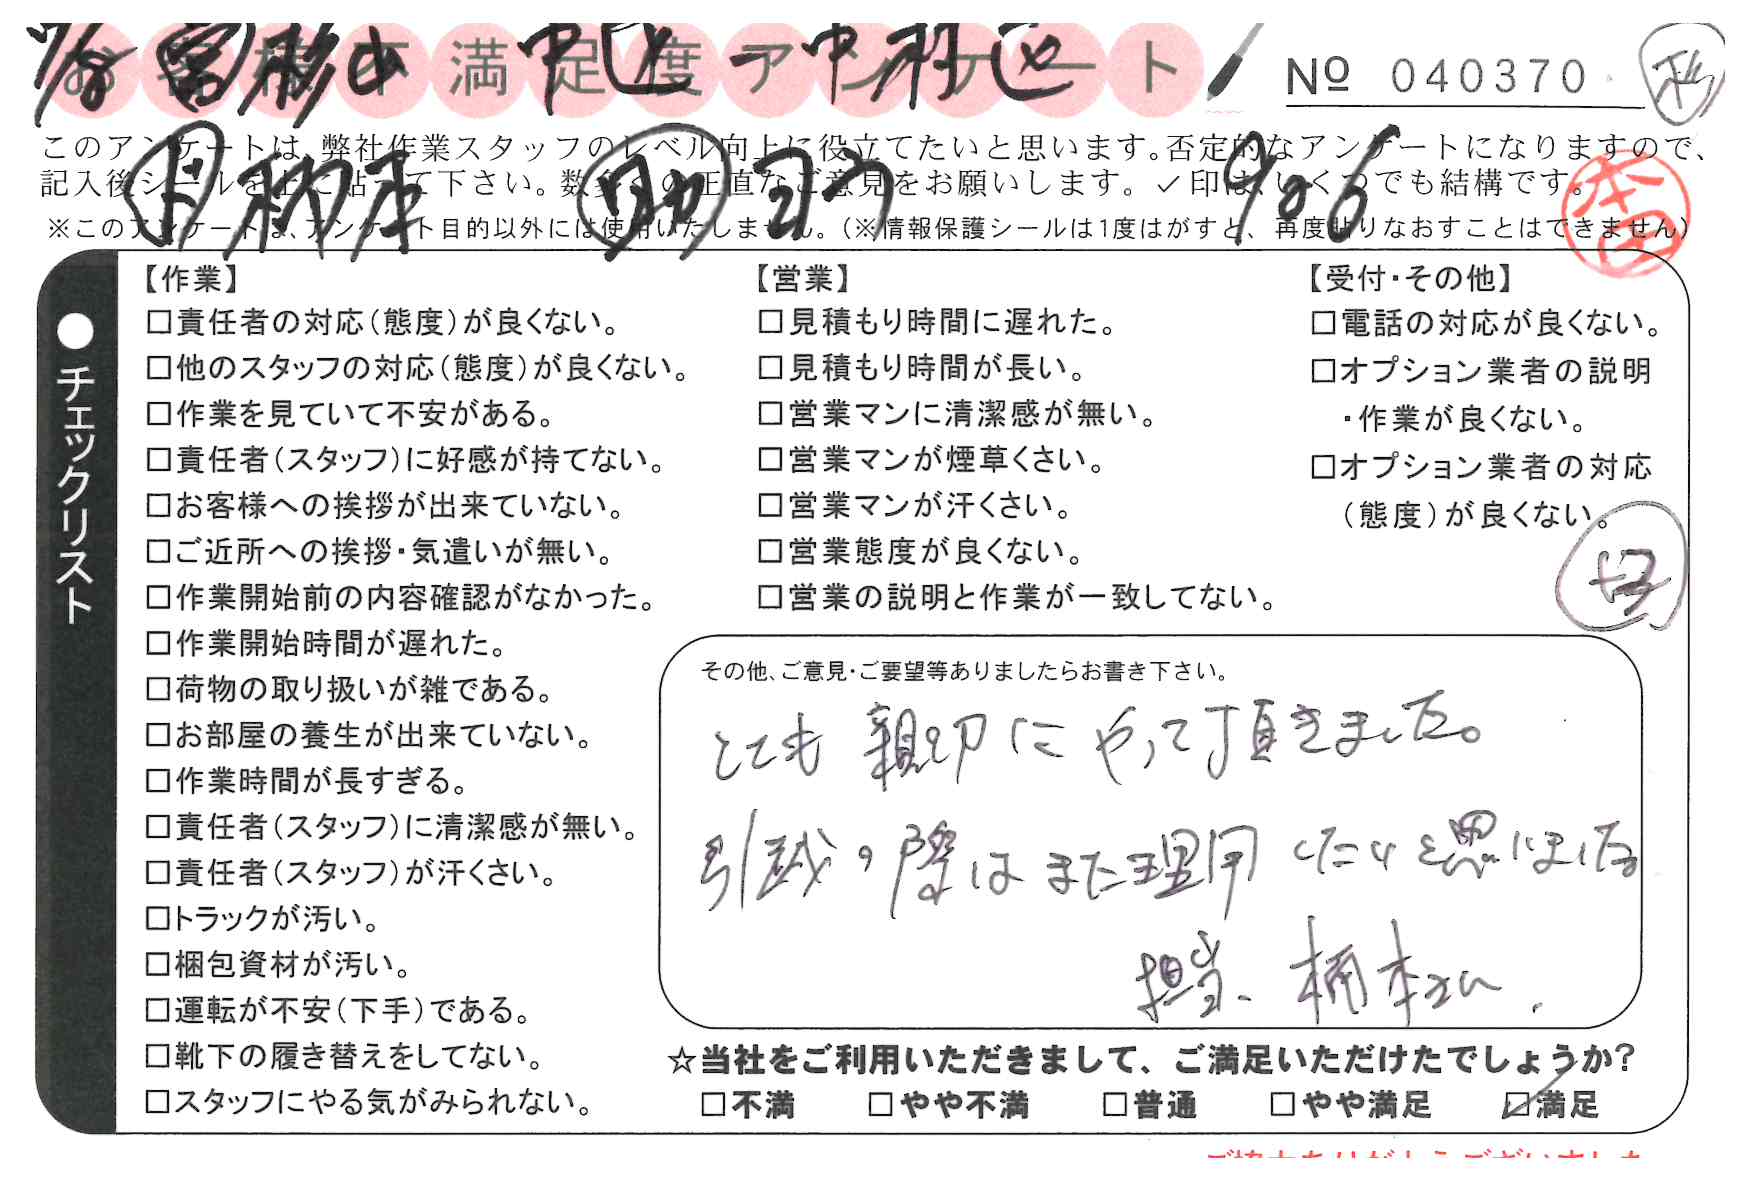 お客様不満足度アンケート
№ 040370
中区→中村区
このアンケートは、弊社作業スタッフのレベル向上に役立てたいと思います。否定的なアンケートになりますので、
記入後シールを上に貼って下さい。数多くの正直なご意見をお願いします。✓印は、いくつでも結構です。
※このアンケートは、アンケート目的以外には使用いたしません。(※情報保護シールは1度はがすと、再度貼りなおすことはできません)
906
本田
●チェックリスト
【作業】
□責任者の対応(態度)が良くない。
□他のスタッフの対応(態度)が良くない。
□作業を見ていて不安がある。
□責任者(スタッフ)に好感が持てない。
□お客様への挨拶が出来ていない。
□ご近所への挨拶・気遣いが無い。
□作業開始前の内容確認がなかった。
□作業開始時間が遅れた。
□荷物の取り扱いが雑である。
□お部屋の養生が出来ていない。
□作業時間が長すぎる。
□責任者(スタッフ)に清潔感が無い。
□責任者(スタッフ)が汗くさい。
□トラックが汚い。
□梱包資材が汚い。
□運転が不安(下手)である。
□靴下の履き替えをしてない。
□スタッフにやる気がみられない。
【営業】
□見積もり時間に遅れた。
□見積もり時間が長い。
□営業マンに清潔感が無い。
□営業マンが煙草くさい。
□営業マンが汗くさい。
□営業態度が良くない。
□営業の説明と作業が一致してない。
【受付・その他】
□電話の対応が良くない。
□オプション業者の説明
・作業が良くない。
□オプション業者の対応
(態度)が良くない。
その他、ご意見・ご要望等ありましたらお書き下さい。
とても親切にやって頂きました。
引越の際はまた理用したいと思いました。
担当、楠本さん
☆当社をご利用いただきまして、ご満足いただけたでしょうか?
□不満 □やや不満 □普通 □やや満足 ☑満足
ご協力ありがとうございました